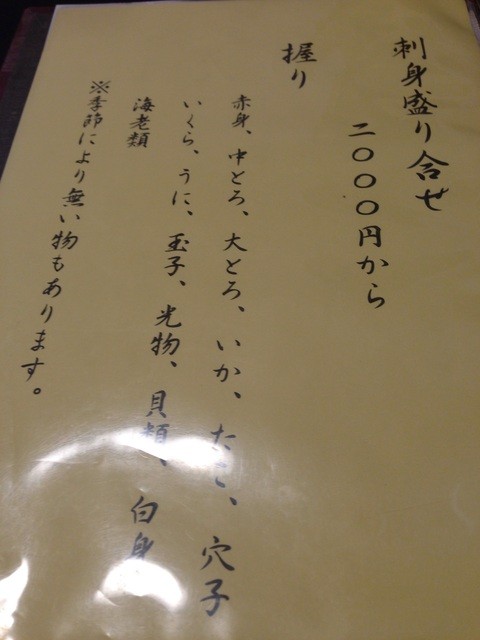 刺身盛り合せ
二〇〇〇円から
握り
赤身、中とろ、大とろ、いか、たこ、穴子
いくら、うに、玉子、光物、貝類、白身
海老類
※季節により無い物もあります。